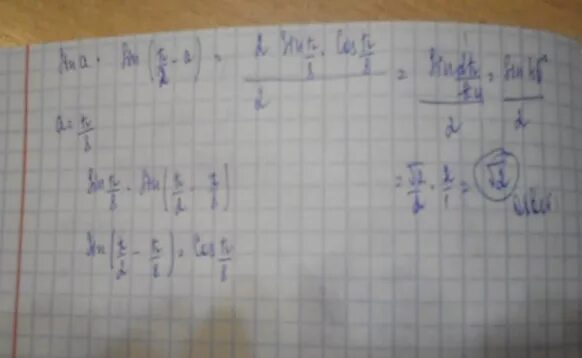 sin a · sin(π/2 - a) = (2 sin π/8 · cos π/8)/2 = (sin 2π/8)/2 = (sin 45)/2
a = π/8
= √2/2 · 2/1 = √2
sin π/8 · sin(π/2 - π/8)
sin(π/2 - π/8) = cos π/8